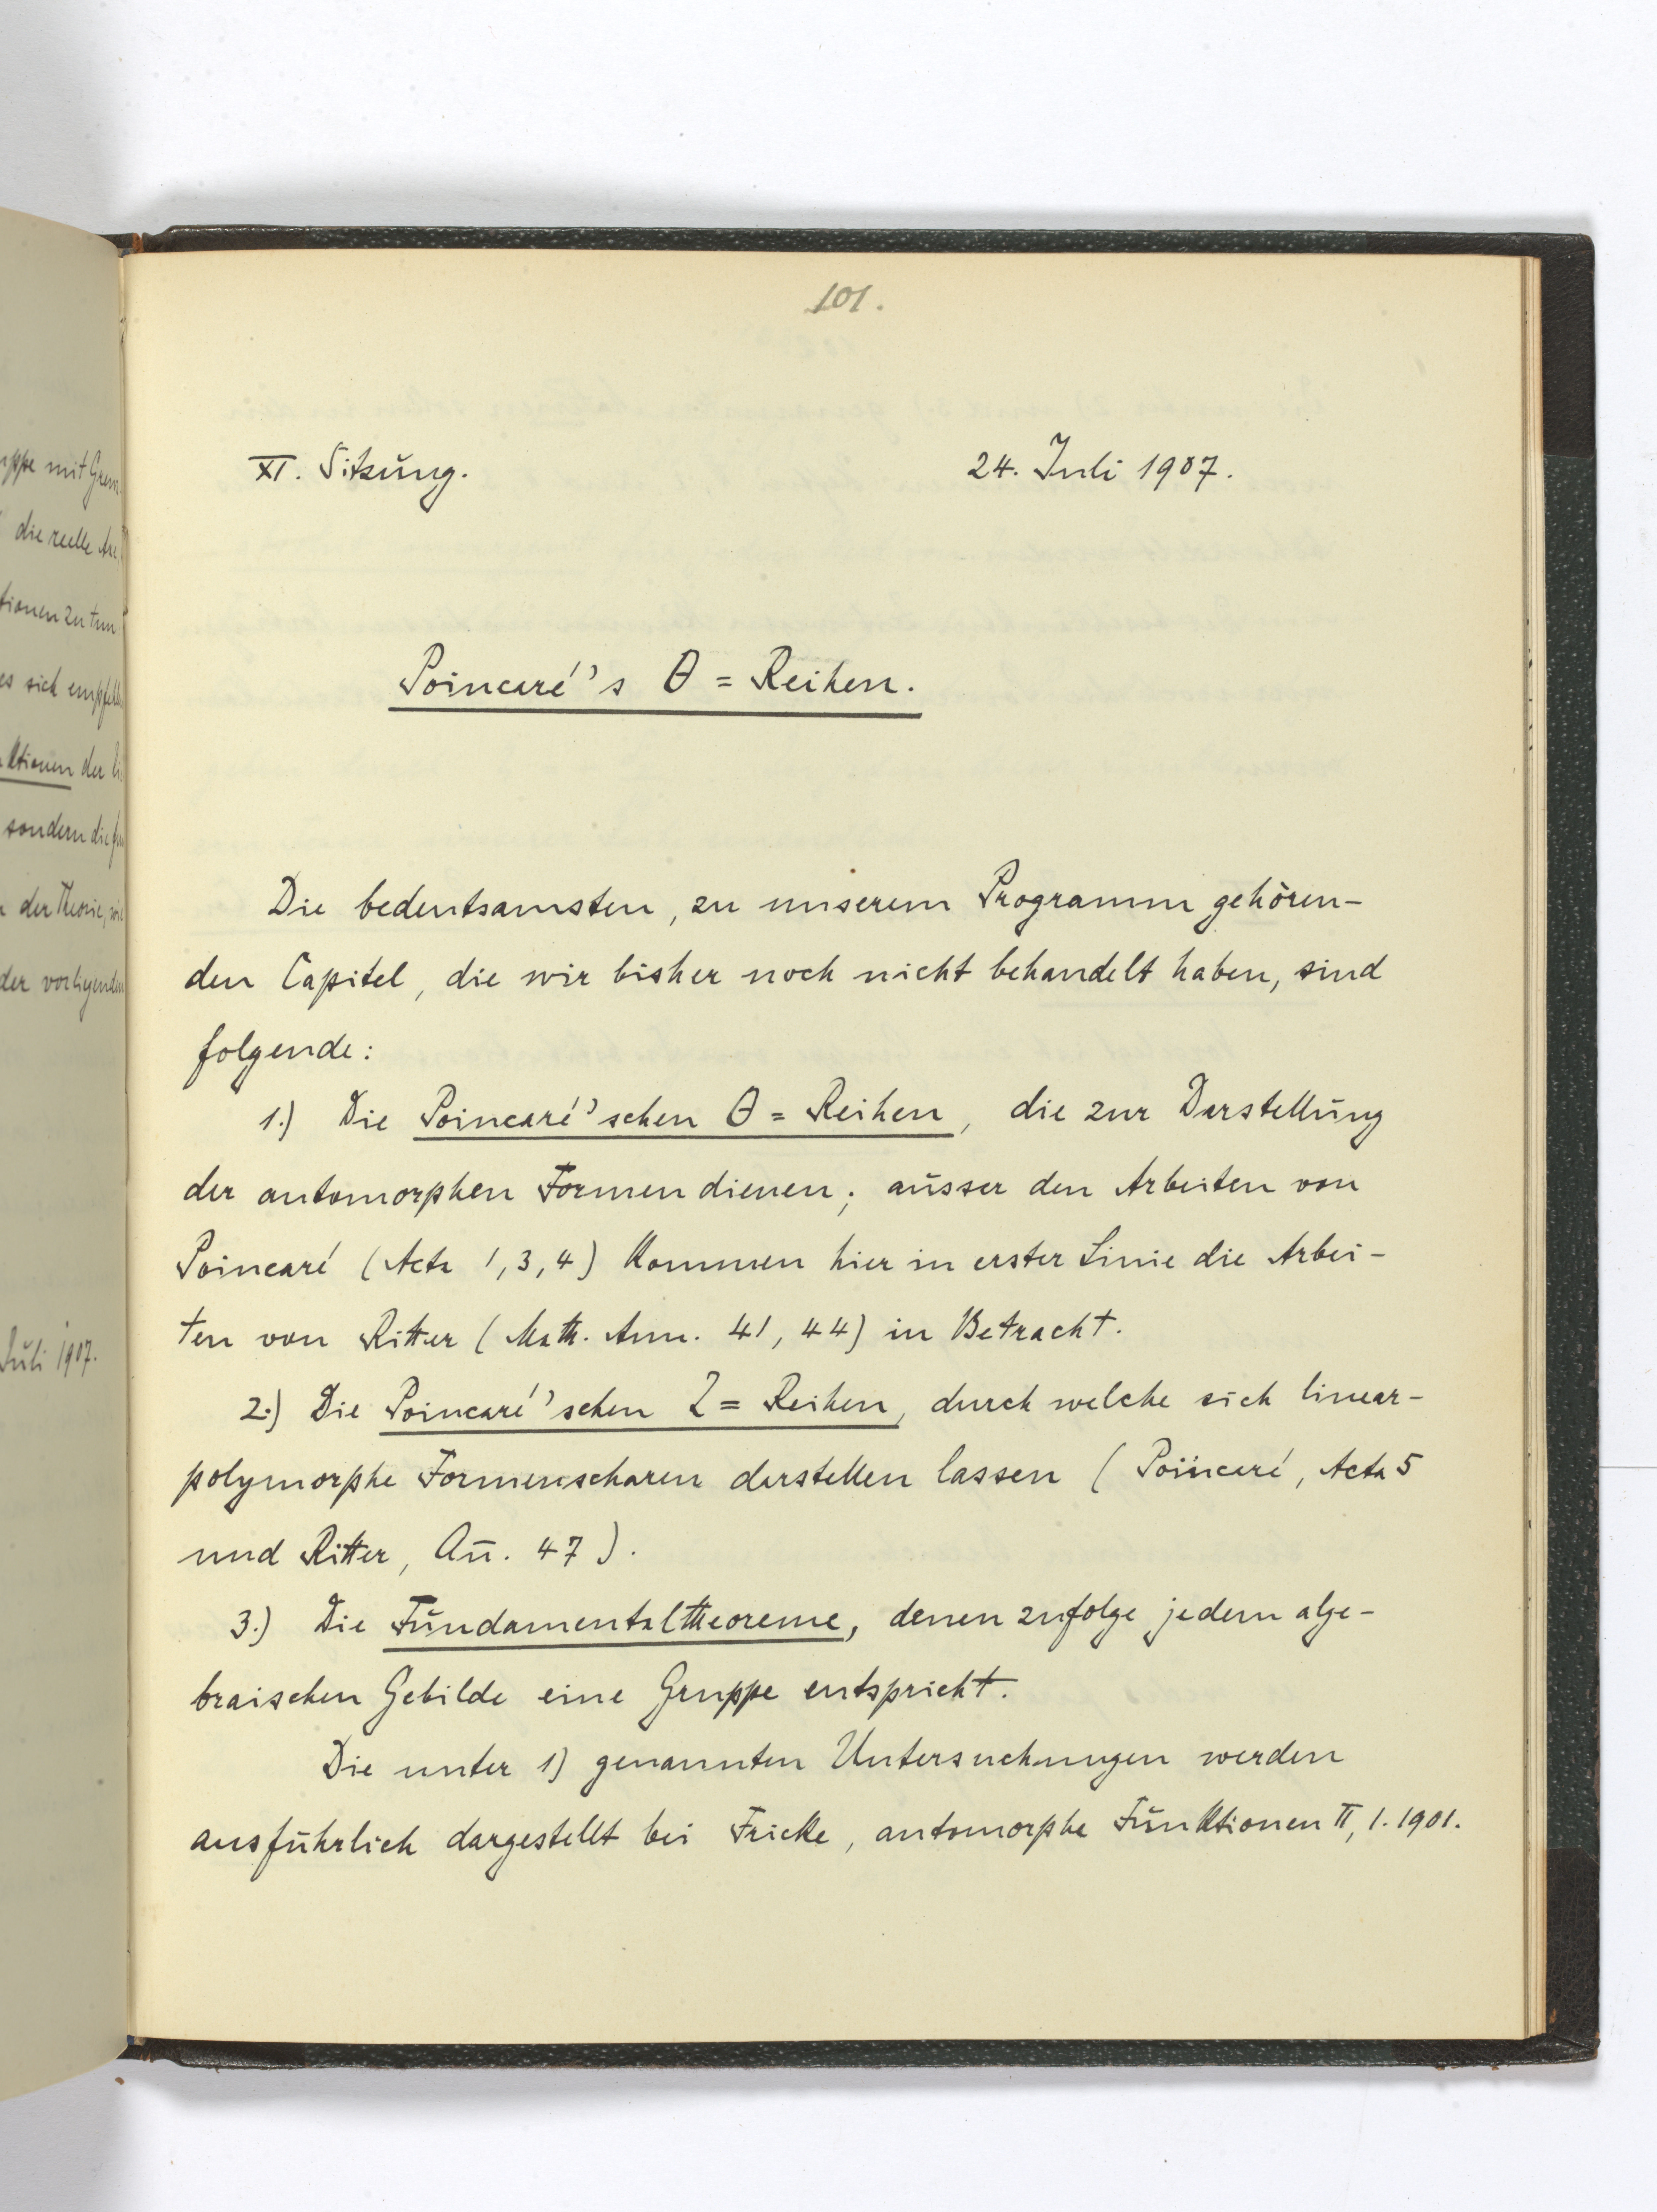 101.
XI. Sitzung.
24. Juli 1907.
Poincaré's θ = Reihen.
Die bedeutsamsten, zu unserem Programm gehören-
den Capitel, die wir bisher noch nicht behandelt haben, sind
folgende:
1.) Die Poincaré'schen θ = Reihen, die zur Darstellung
der automorphen Formen dienen; ausser den Arbeiten von
Poincaré (Acta 1, 3, 4) kommen hier in erster Linie die Arbei-
ten von Ritter (Math. Ann. 41, 44) in Betracht.
2.) Die Poincaré'schen Z = Reihen, durch welche sich linear-
polymorphe Formenscharen darstellen lassen (Poincaré, Acta 5
und Ritter, An̄. 47).
3.) Die Fundamentaltheoreme, denen zufolge jedem alge-
braischen Gebilde eine Gruppe entspricht.
Die unter 1) genannten Untersuchungen werden
ausführlich dargestellt bei Fricke, automorphe Funktionen II, 1. 1901.
mit
die reelle
tionen zu tun
es sich
ktionen der
sondern die
der Theorie, wie
der vorliegenden
Juli 1907.